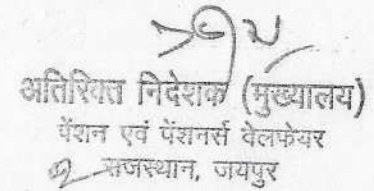 अतिरिक्त निदेशक (मुख्यालय)
पेंशन एवं पेंशनर्स वेलफेयर
राजस्थान, जयपुर